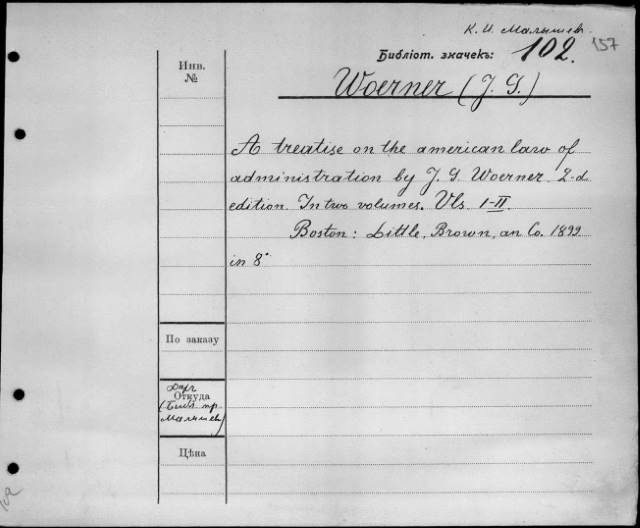 К. И. Малышев.
Библіот. значекъ: 102. 157
Инв. №
Woerner (J. G.)
A treatise on the american law of
administration by J. G. Woerner 2-d
edition. In two volumes. Vls. I-II.
Boston: Little, Brown, an Co. 1899
in 8°
По заказу
Откуда
Малышев)
Цѣна